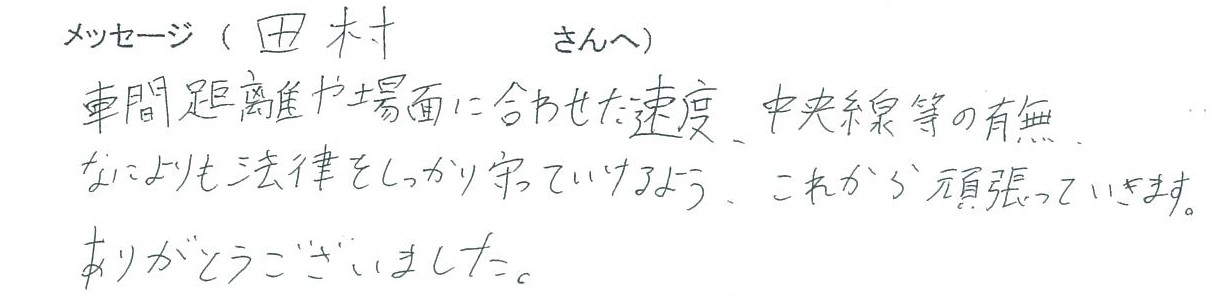 メッセージ（ 田村 さんへ）
車間距離や場面に合わせた速度、中央線等の有無、
なによりも法律をしっかり守っていけるよう、これから頑張っていきます。
ありがとうございました。